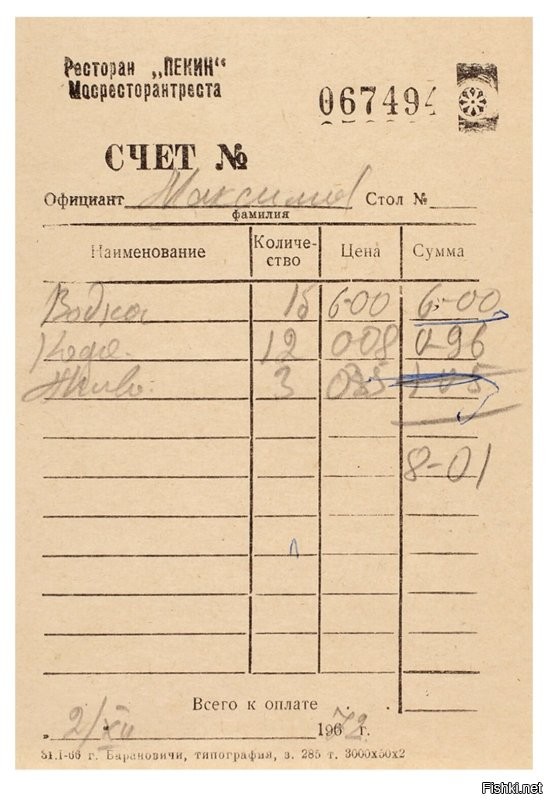 Ресторан „ПЕКИН“
Мосресторантреста
067494
СЧЕТ №
Официант Максимов Стол №
фамилия
Наименование Количе-ство Цена Сумма
Водка 1б 6-00 6-00
Кофе 12 0-08 0-96
Пиво 3 035 1-05
8-01
Всего к оплате
„ 2/XII 1967 2 г.
31.I-66 г. Барановичи, типография, з. 285 т. 3000х50х2
Fishki.net